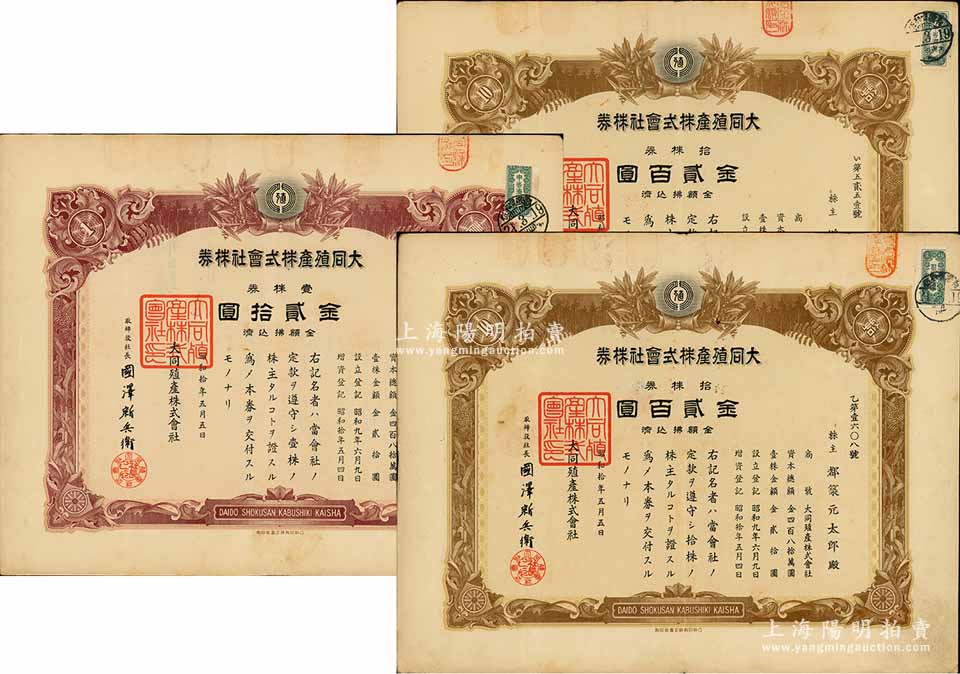 殖
大同殖產株式會社株券
拾株券
金貳百圓
金額拂込濟
い第五貳五壹號
株主
殖
大同殖產株式會社株券
壹株券
金貳拾圓
金額拂込濟
資本總額 金四百八拾萬圓
壹株金額 金貳拾圓
設立登記 昭和九年六月九日
增資登記 昭和拾年五月四日
右記名者ハ當會社ノ
定款ヲ遵守シ壹株ノ
株主タルコトヲ證スル
爲メ本券ヲ交付スル
モノナリ
昭和拾年五月五日
大同殖產株式會社
取締役社長 國澤新兵衞
大同殖產株式會社之印
DAIDO SHOKUSAN KABUSHIKI KAISHA
殖
大同殖產株式會社株券
拾株券
金貳百圓
金額拂込濟
乙第壹六〇八號
株主 都築元太郎殿
商號 大同殖產株式會社
資本總額 金四百八拾萬圓
壹株金額 金貳拾圓
設立登記 昭和九年六月九日
增資登記 昭和拾年五月四日
右記名者ハ當會社ノ
定款ヲ遵守シ拾株ノ
株主タルコトヲ證スル
爲メ本券ヲ交付スル
モノナリ
昭和拾年五月五日
大同殖產株式會社
取締役社長 國澤新兵衞
DAIDO SHOKUSAN KABUSHIKI KAISHA
上海陽明拍賣
www.yangmingauction.com
上海陽明拍賣
www.yangmingauction.com